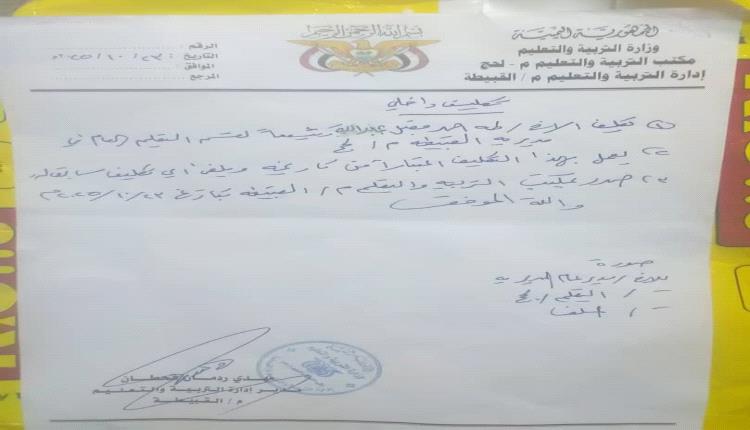 الجمهورية اليمنية
وزارة التربية والتعليم
مكتب التربية والتعليم م - لحج
إدارة التربية والتعليم م / القبيطة
بسم الله الرحمن الرحيم
الرقم :
التاريخ : ٢٣ / ١٠ / ٢٠٢٥م
الموافق :
المرجع :
تكليف داخلي
١) تكليف الاخ / طه احمد مقبل عبدالله لقسم التعليم العام في
مديرية القبيطة م / لحج
٢) يعمل بهذا التكليف اعتباراً من تاريخه ويلغى أي تكليف سابق
٣) صدر بمكتب التربية والتعليم م / القبيطة بتاريخ ٢٣ / ١٠ / ٢٠٢٥م
والله الموفق
صورة
للاخ / مدير عام المديرية
/ التعليم / لحج
/ الملف
مهدي ردمان قحطان
مدير إدارة التربية والتعليم
م / القبيطة